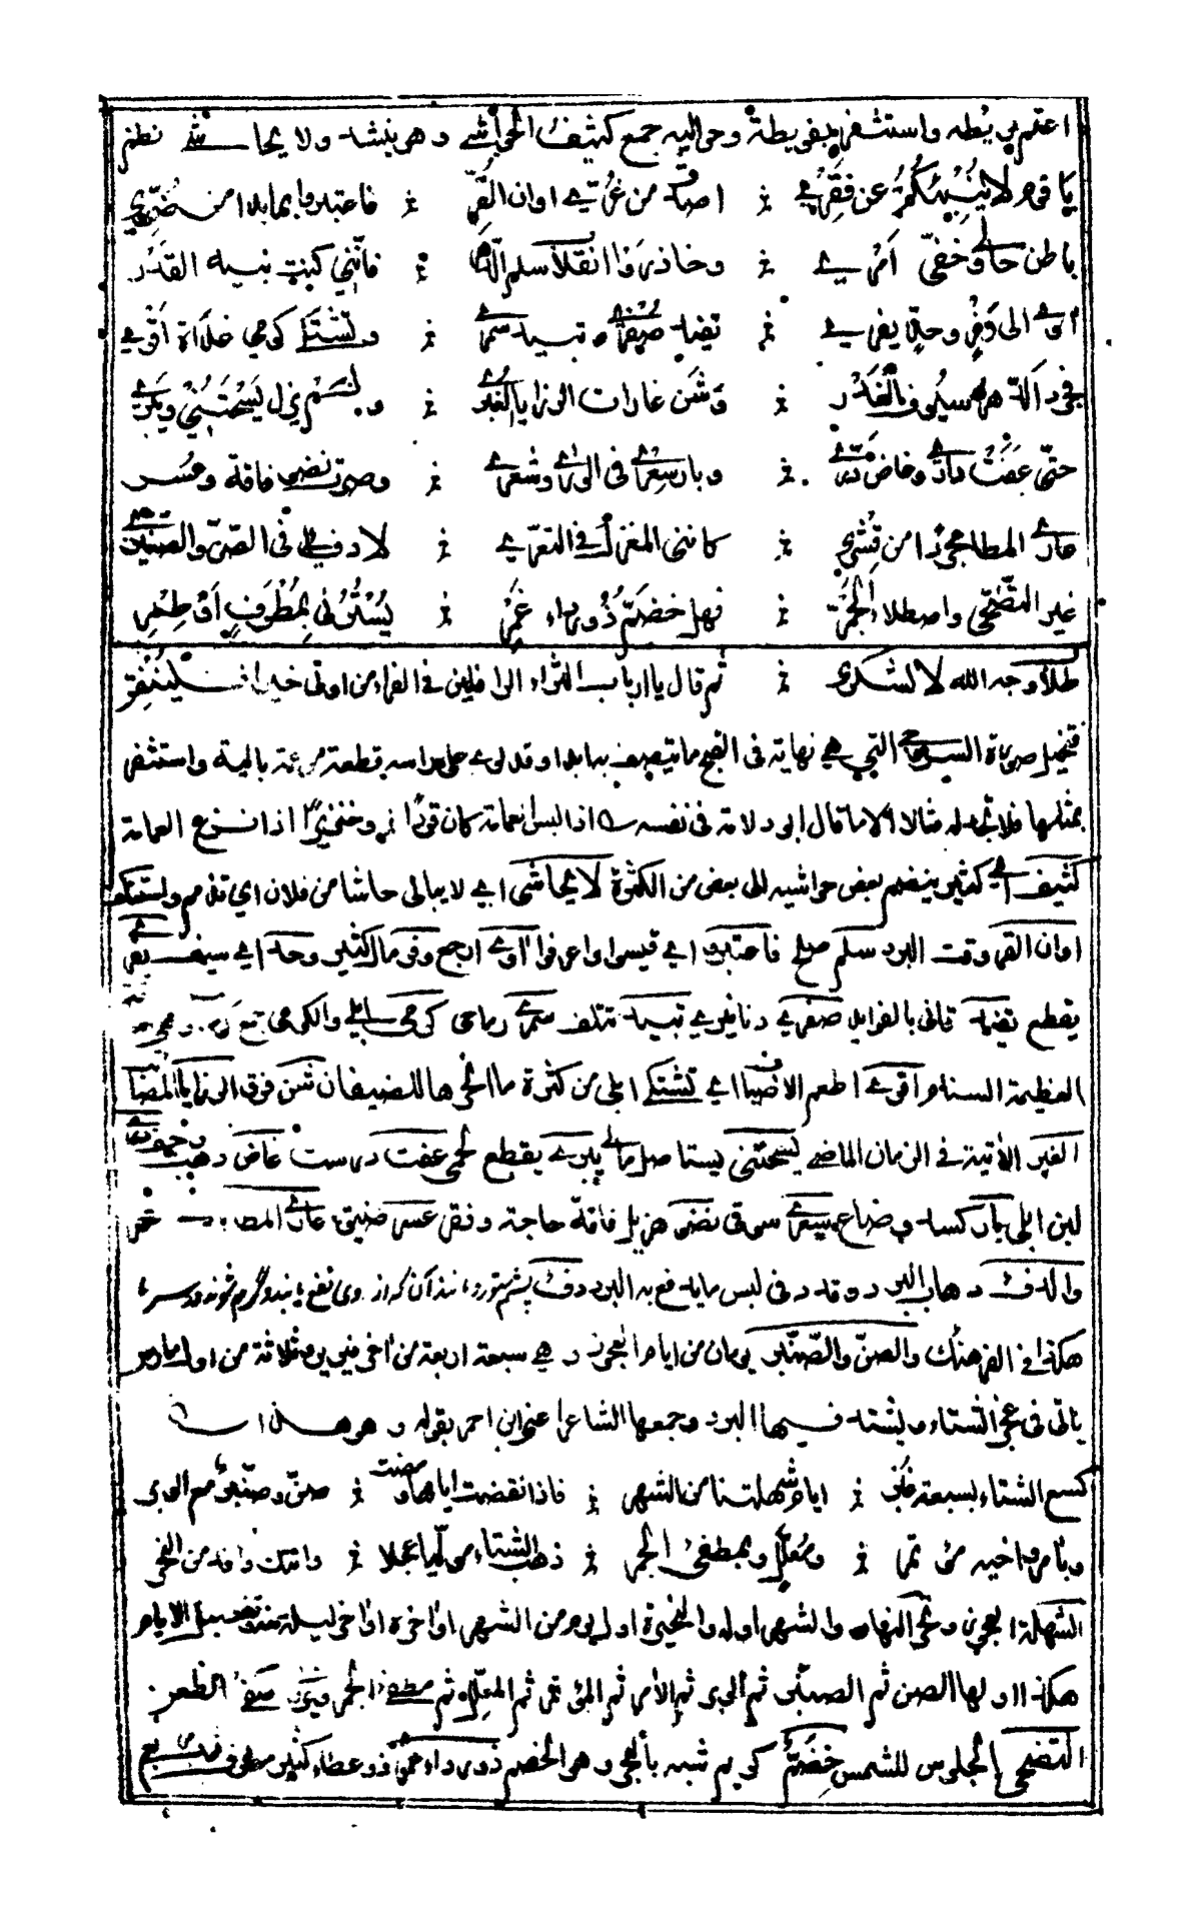 اعتم بريطة واستثفر بفويطة وحواليه جمع كثيف الحواشي وهو ينشد ولا يحاشي نظم
يا قوم لا ينبئكم عن فقري ؞ اصدق من عريي اوان القر ؞ فاعتبروا بما بدا من ضري
باطن حالي وخفي امري ؞ وحاذروا انقلاب سلم الدهر ؞ فانني كنت نبيه القدر
آوي الى وفر وحد يفري ؞ تفيد صفري وتبيد سمري ؞ وتشتكي كومي غداة اقري
فجرد الدهر سيوف الغدر ؞ وشن غارات الرزايا الغبر ؞ ولم يزل يسحتني ويبري
حتى عفت داري وغاض دري ؞ وبار سعري في الورى وشعري ؞ وصرت نضو فاقة وعسر
عاري المطا مجردا من قشري ؞ كانني المغزل في التعري ؞ لا دفء لي في الصن والصنبر
غير التضحي واصطلاء الجمر ؞ فهل خضم ذو رداء غمر ؞ يسترني بمطرف او طمر
طلاب وجه الله لا لشكري ؞ ثم قال يا ارباب الثراء الرافلين في الفراء من اوتي خيرا فلينفق
فتخيل صورة السروجي التي هي نهاية في القبح ما يتصف بها بدا وقد لوى على راسه قطعة
بمثلها فلا تجد له مثالا الا ما قال ابو دلامة في نفسه اذا لبس العمامة كان قردا وخنزيرا اذا نزع العمامة
كثيف اي كثير ينضم بعض حواشيه الى بعض من الكثرة لا يحاشي اي لا يبالي حاشا من فلان اي تذمم واستنكف
اوان القر وقت البرد سلم صلح فاعتبروا اي قيسوا واعرفوا آوي ارجع وفر مال كثير وحد اي سيف يفري
يقطع تفيد تاتي بالفوايد صفري دنانيري تبيد تتلف سمري رماحي كومي ابلي والكوم جمع
العظيمة السنام اقري اطعم الاضياف اي تشتكي ابلي من كثرة ما انحرها للضيفان شن فرق الرزايا المصايب
الغبر الآتية في الزمان الماضي يسحتني يستاصل مالي يبري يقطع لحمي عفت درست غاض ذهب
لبن ابلي بار كسد وضاع سعري سوقي نضو هزيل فاقة حاجة وفقر عسر ضيق عاري المطا
والدفء ذهاب البرد وقد دفئ لبس ما يدفع به البرد دفء پشم ستور و مانند آن كه از وى نفع يابند و گرم شوند
هكذا في الفرهنك والصن والصنبر يومان من ايام العجوز وهي سبعة اربعة من آخر فيبرير وثلاثة من اول مارس
ياتي في عجز الشتاء ويشتد فيها البرد وجمعها الشاعر اعني ابن احمر بقوله وهو هذا
كسع الشتاء بسبعة غبر ؞ ايام شهلتنا من الشهر ؞ فاذا انقضت ايامها ومضت ؞ صن وصنبر مع الوبر
وبآمر واخيه مؤتمر ؞ ومعلل وبمطفئ الجمر ؞ ذهب الشتاء موليا عجلا ؞ واتتك وافدة من النجر
الشهلة العجوز ونحر النهار والشهر اوله والنحيرة اول يوم من الشهر او آخره او آخر ليلة منه وتفصيل الايام
هكذا اولها الصن ثم الصنبر ثم الوبر ثم الآمر ثم المؤتمر ثم المعلل ثم مطفئ الجمر ويروى مكفئ الظعن
التضحي الجلوس للشمس خضم كريم شبه بالبحر وهو الخضم ذو رداء غمر ذو عطاء كثير